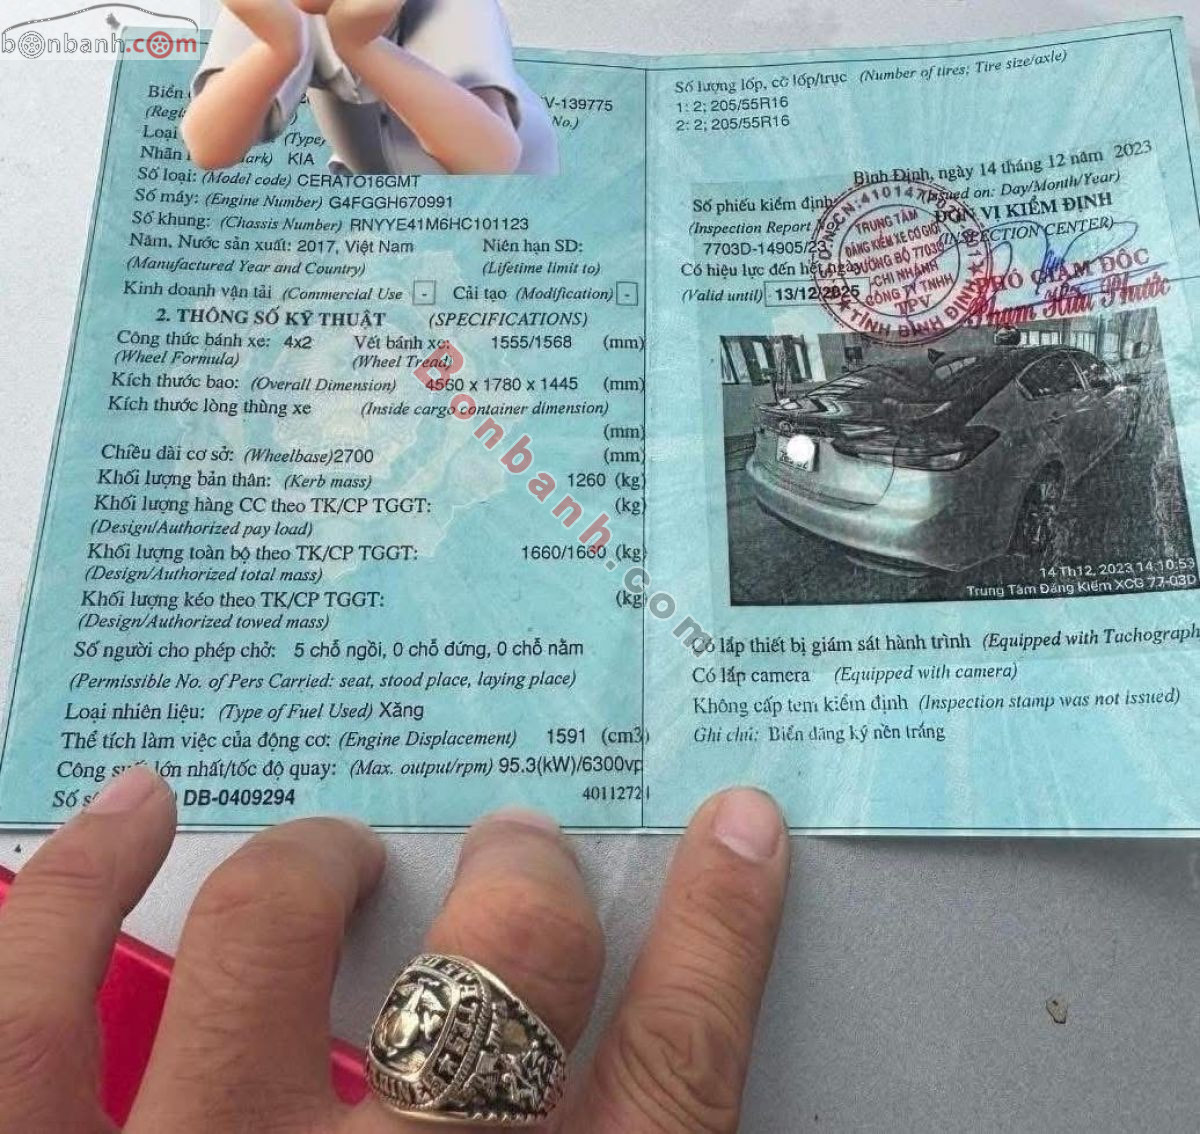 bonbanh.com
Biển
V-139775
(Regi
No.)
Loại
(Type)
Nhãn
ark) KIA
Số loại: (Model code) CERATO16GMT
Số máy: (Engine Number) G4FGGH670991
Số khung: (Chassis Number) RNYYE41M6HC101123
Năm, Nước sản xuất: 2017, Việt Nam
Niên hạn SD:
(Manufactured Year and Country)
(Lifetime limit to)
Kinh doanh vận tải (Commercial Use - Cải tạo (Modification) -
2. THÔNG SỐ KỸ THUẬT (SPECIFICATIONS)
Công thức bánh xe: 4x2 Vết bánh xe: 1555/1568 (mm)
(Wheel Formula) (Wheel Tread)
Kích thước bao: (Overall Dimension) 4560 x 1780 x 1445 (mm)
Kích thước lòng thùng xe (Inside cargo container dimension)
(mm)
Chiều dài cơ sở: (Wheelbase)2700 (mm)
Khối lượng bản thân: (Kerb mass) 1260 (kg)
Khối lượng hàng CC theo TK/CP TGGT: (kg)
(Design/Authorized pay load)
Khối lượng toàn bộ theo TK/CP TGGT: 1660/1660 (kg)
(Design/Authorized total mass)
Khối lượng kéo theo TK/CP TGGT: (kg
(Design/Authorized towed mass)
Số người cho phép chở: 5 chỗ ngồi, 0 chỗ đứng, 0 chỗ nằm
(Permissible No. of Pers Carried: seat, stood place, laying place)
Loại nhiên liệu: (Type of Fuel Used) Xăng
Thể tích làm việc của động cơ: (Engine Displacement) 1591 (cm3)
Công suất lớn nhất/tốc độ quay: (Max. output/rpm) 95.3(kW)/6300vp
Số s DB-0409294
4011272
Số lượng lốp, cỡ lốp/trục (Number of tires; Tire size/axle)
1: 2; 205/55R16
2: 2; 205/55R16
Bình Định, ngày 14 tháng 12 năm 2023
(Issued on: Day/Month/Year)
Số phiếu kiểm định
ĐƠN VỊ KIỂM ĐỊNH
(Inspection Report
(INSPECTION CENTER)
7703D-14905/23
Có hiệu lực đến hết ngày
(Valid until) 13/12/2025
PHÓ GIÁM ĐỐC
Phạm Hữu Phước
TRUNG TÂM
ĐĂNG KIỂM XE CƠ GIỚI
ĐƯỜNG BỘ 7703D
-CHI NHÁNH
CÔNG TY TNHH
TỈNH BÌNH ĐỊNH
14 Th12, 2023 14:10:53
Trung Tâm Đăng Kiểm XCG 77-03D
Có lắp thiết bị giám sát hành trình (Equipped with Tachograph
Có lắp camera (Equipped with camera)
Không cấp tem kiểm định (Inspection stamp was not issued)
Ghi chú: Biển đăng ký nền trắng
Bonbanh.com